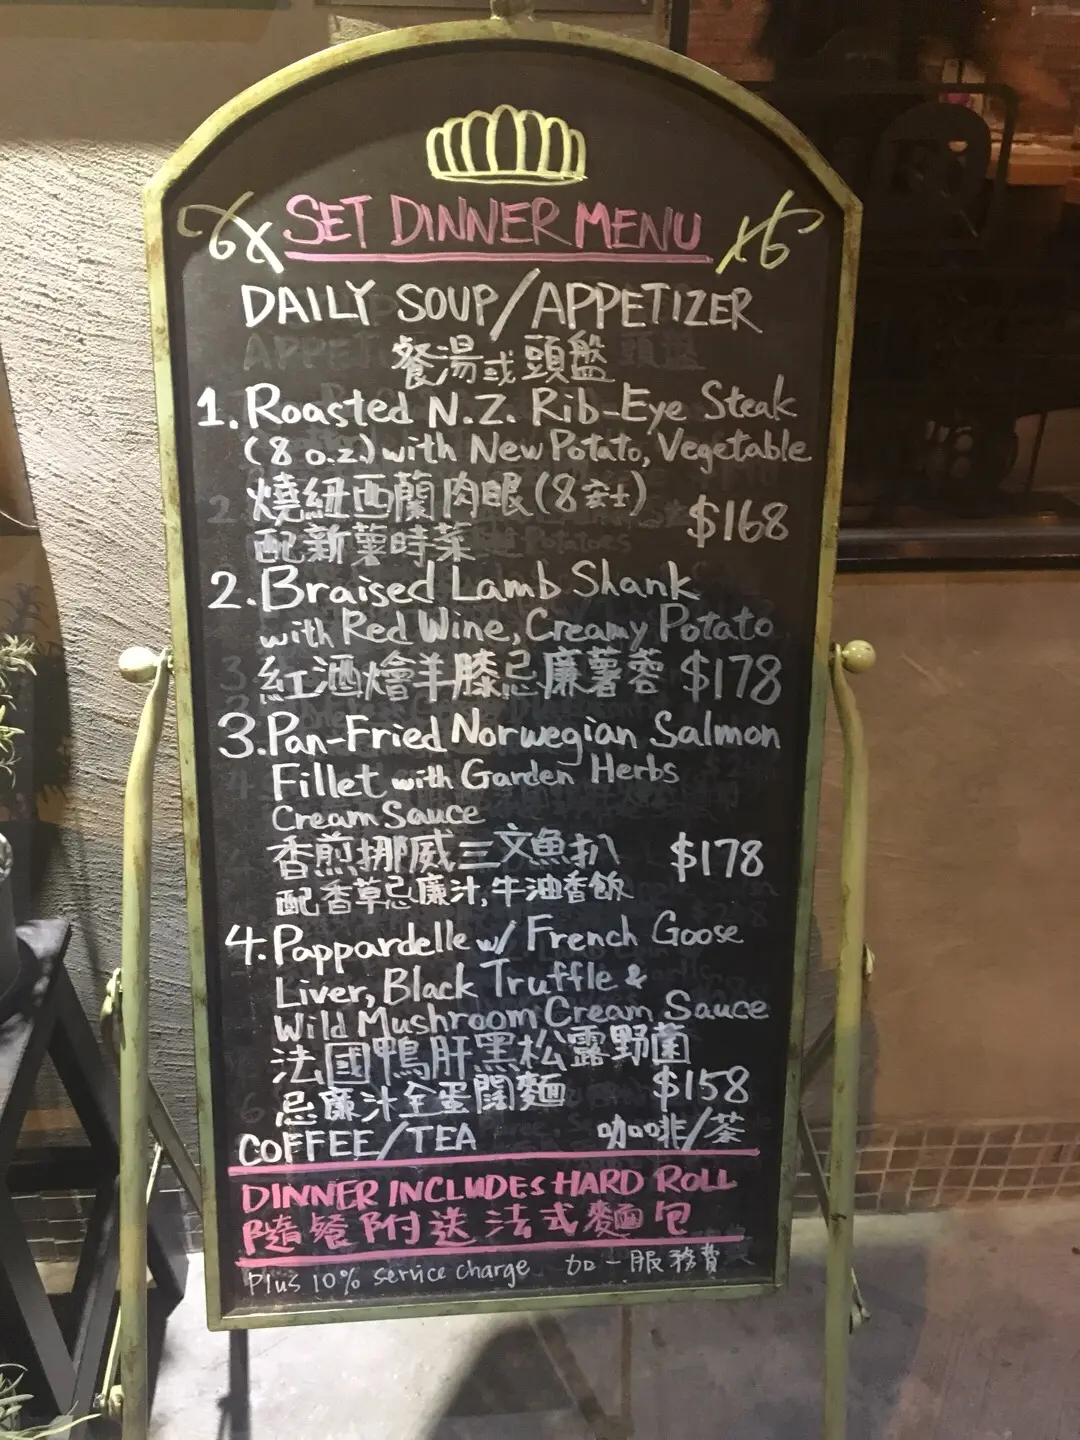 SET DINNER MENU
DAILY SOUP/APPETIZER
餐湯或頭盤
1. Roasted N.Z. Rib-Eye Steak
(8 o.z.) with New Potato, Vegetable
燒紐西蘭肉眼(8安士)
$168
配新薯時菜
2. Braised Lamb Shank
with Red Wine, Creamy Potato
紅酒燴羊膝忌廉薯蓉 $178
3. Pan-Fried Norwegian Salmon
Fillet with Garden Herbs
Cream Sauce
香煎挪威三文魚扒 $178
配香草忌廉汁,牛油香飯
4. Pappardelle w/ French Goose
Liver, Black Truffle &
Wild Mushroom Cream Sauce
法國鴨肝黑松露野菌
忌廉汁全蛋闊麵 $158
COFFEE/TEA 咖啡/茶
DINNER INCLUDES HARD ROLL
隨餐附送法式麵包
Plus 10% service charge 加一服務費